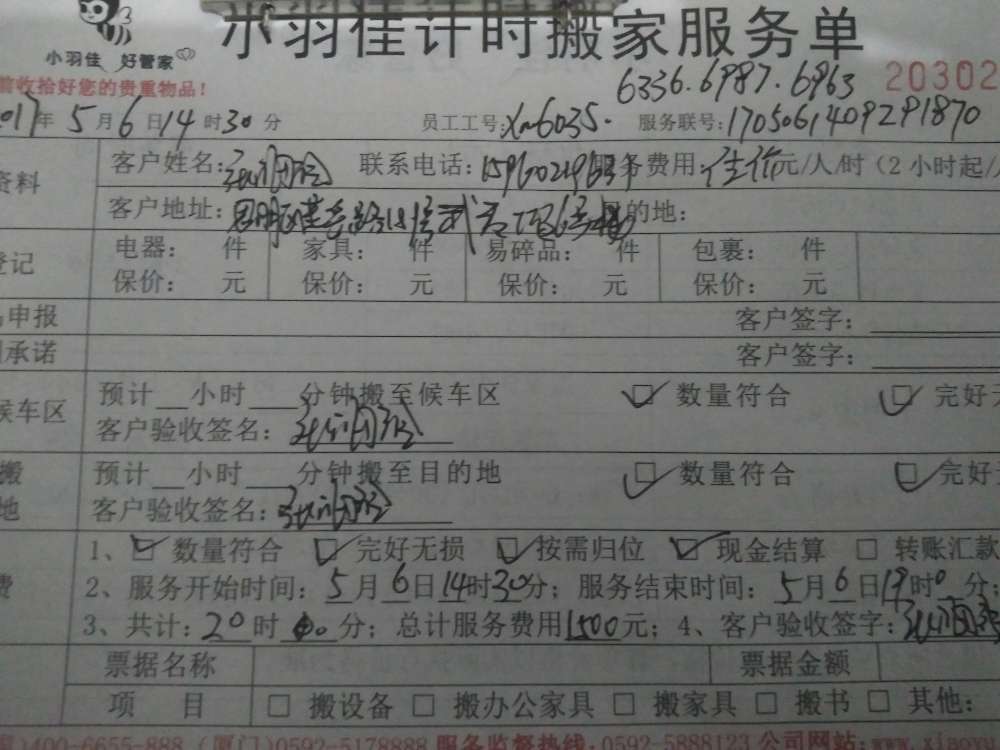 小羽佳计时搬家服务单
小羽佳 好管家
前收拾好您的贵重物品！
6336.6987.6963
20302
2017年5月6日14时30分 员工工号：Xm6035. 服务联号：1705061409291870
资料 客户姓名： 联系电话： 服务费用： 元/人/时（2小时起/
客户地址： 目的地：
登记 电器： 件 家具： 件 易碎品： 件 包裹： 件
保价： 元 保价： 元 保价： 元 保价： 元
申报 客户签字：
承诺 客户签字：
候车区 预计__小时___分钟搬至候车区 数量符合 完好无
客户验收签名：
搬 预计__小时___分钟搬至目的地 数量符合 完好无
地 客户验收签名：
1、数量符合 完好无损 按需归位 现金结算 转账汇款
费 2、服务开始时间：5月6日14时30分；服务结束时间：5月6日19时0分；
3、共计：20时 分；总计服务费用1500元；4、客户验收签字：
票据名称 票据金额
项 目 搬设备 搬办公家具 搬家具 搬书 其他：
)400-6655-888（厦门)0592-5178888 服务监督热线：0592-5888123 公司网站：www.xiaoyu